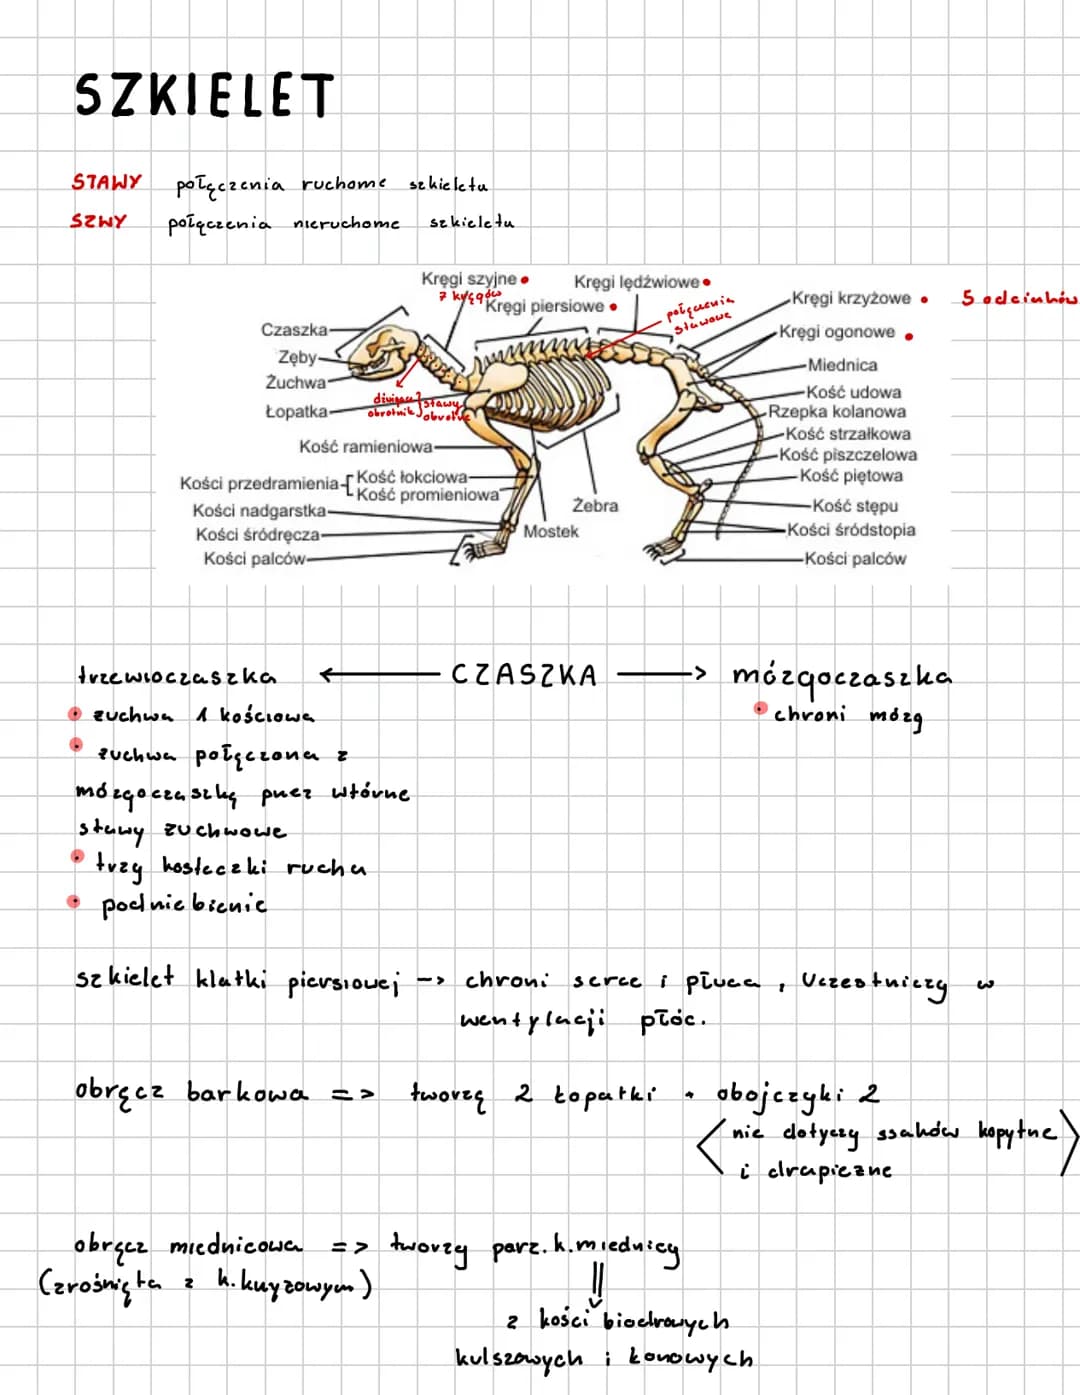 SZKIELET
STAWY połączenia ruchome szkieletu
SZWY połączenia nieruchome szkieletu
Kręgi szyjne •
7 kręgów
Kręgi piersiowe •
Kręgi lędźwiowe •
połączenia
stawowe
Kręgi krzyżowe • 5 odcinków
Kręgi ogonowe •
Czaszka
Zęby
Żuchwa
Łopatka
obrotnik
stawy
Kość ramieniowa
Kości przedramienia
Kość łokciowa
Kość promieniowa
Kości nadgarstka
Kości śródręcza
Kości palców
Mostek
Żebra
Miednica
Kość udowa
Rzepka kolanowa
Kość strzałkowa
Kość piszczelowa
Kość piętowa
Kość stępu
Kości śródstopia
Kości palców
trzewioczaszka ← CZASZKA → mózgoczaszka
• żuchwa 1 kościowa
• żuchwa połączona z
mózgoczaszką przez wtórne
stawy żuchwowe
• trzy kosteczki ucha
• podniebienie
• chroni mózg
szkielet klatki piersiowej -> chroni serce i płuca, uczestniczy w
wentylacji płóc.
obręcz barkowa => tworzą 2 łopatki + obojczyki 2
< nie dotyczy ssaków kopytne >
i drapieżne
obręcz miednicowa => tworzy parz. k. miednicy
(zrośnięta z k. krzyżowym)
z kości biodrowych
kulszowych i łonowych